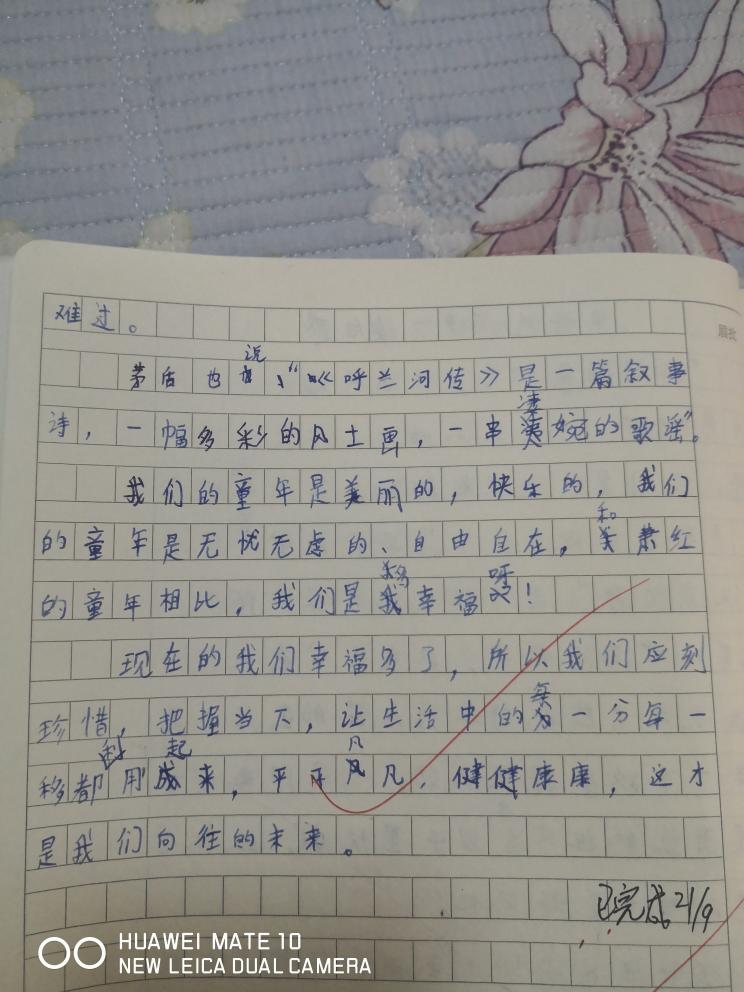 难过。
茅盾也说,“《呼兰河传》是一篇叙事
诗,一幅多彩的风土画,一串凄婉的歌谣”。
我们的童年是美丽的,快乐的,我们
的童年是无忧无虑的、自由自在,和萧红
的童年相比,我们是多幸福呀!
现在的我们幸福多了,所以我们应刻
珍惜,把握当下,让生活中的每一分每一
秒都用起来,平平凡凡,健健康康,这才
是我们向往的未来。
已完成 21/9
HUAWEI MATE 10
NEW LEICA DUAL CAMERA